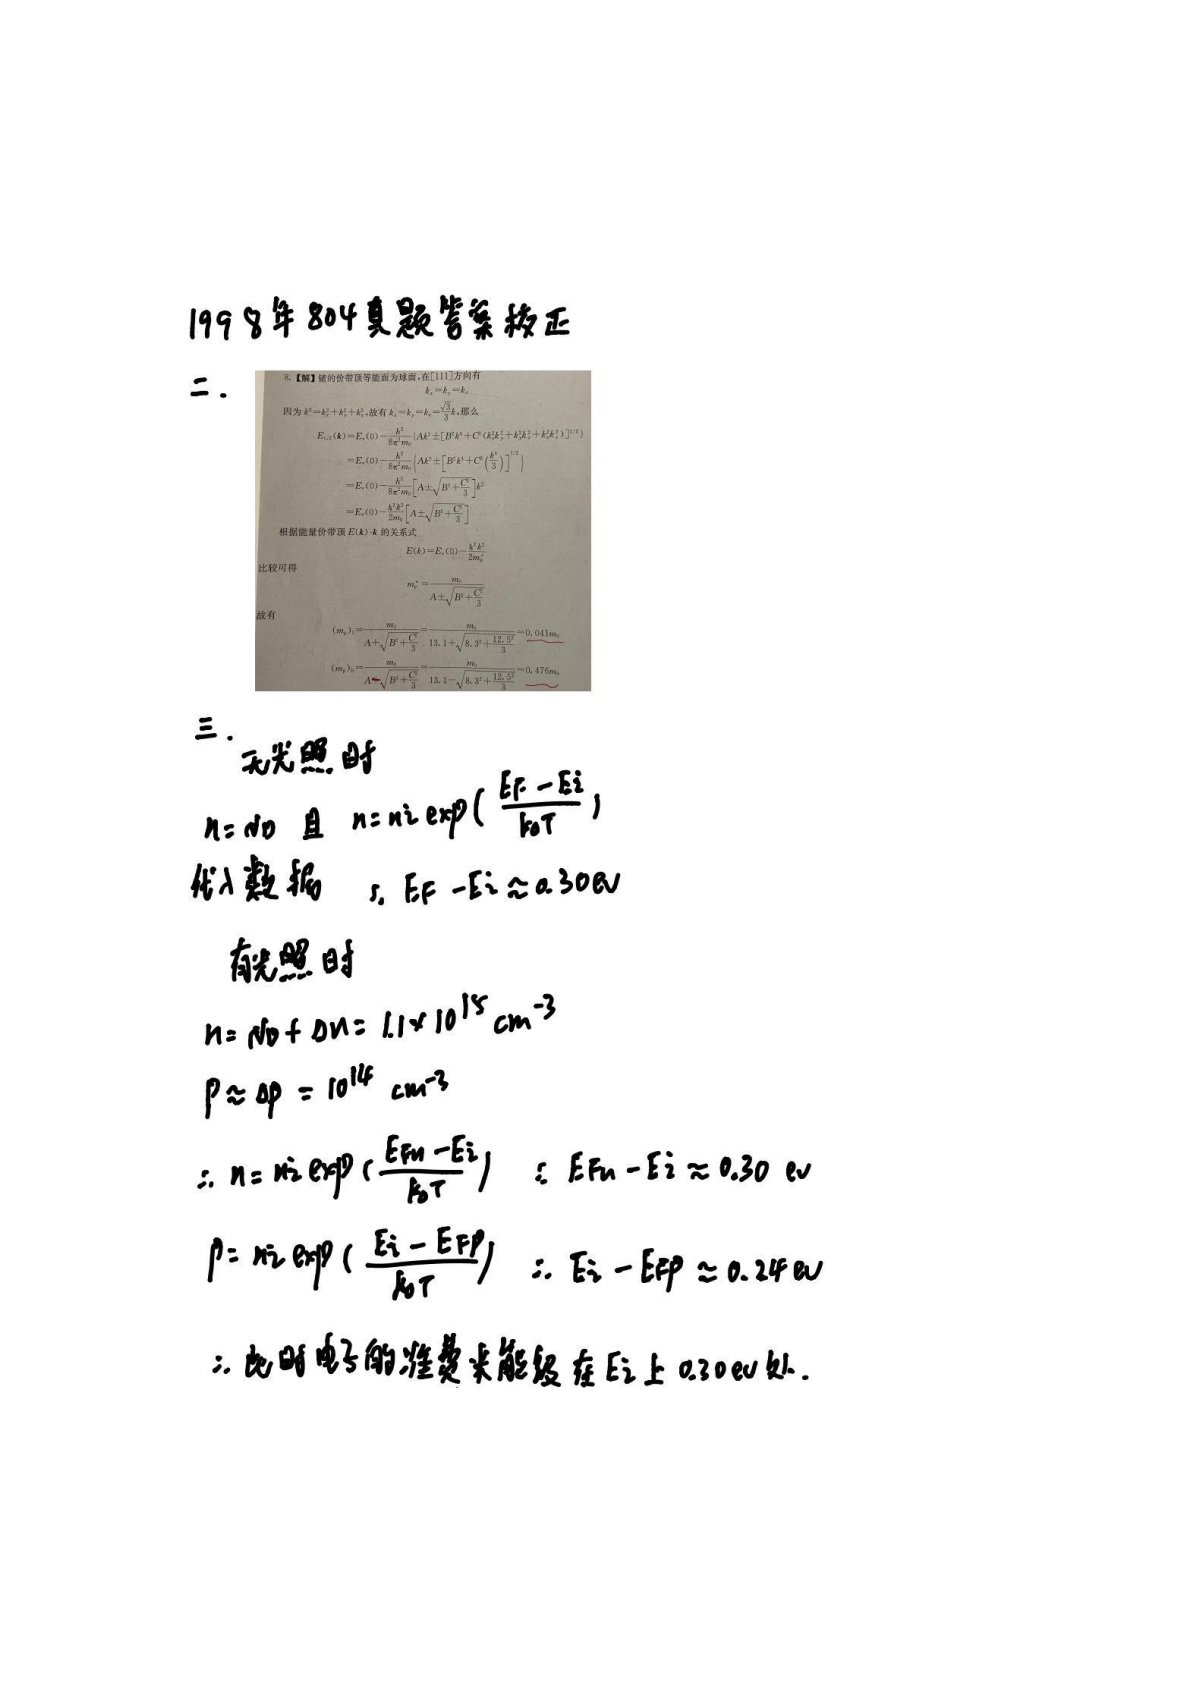 1998年804真题答案核正
二.
8.【解】锗的价带顶等能面为球面,在[111]方向有
kₓ=kᵧ=k_z
因为k²=kₓ²+kᵧ²+k_z²,故有kₓ=kᵧ=k_z=(√3/3)k,那么
E₁,₂(k)=Eᵥ(0)-h²/(8π²m₀){Ak²±[B²k⁴+C²(kₓ²kᵧ²+kᵧ²k_z²+k_z²kₓ²)]^(1/2)}
=Eᵥ(0)-h²/(8π²m₀){Ak²±[B²k⁴+C²(k⁴/3)]^(1/2)}
=Eᵥ(0)-h²/(8π²m₀)[A±√(B²+C²/3)]k²
=Eᵥ(0)-ħ²k²/(2m₀)[A±√(B²+C²/3)]
根据能量价带顶E(k)-k的关系式
E(k)=Eᵥ(0)-ħ²k²/(2mₚ*)
比较可得
mₚ*=m₀/(A±√(B²+C²/3))
故有
(mₚ)ₗ=m₀/(A+√(B²+C²/3))=m₀/(13.1+√(8.3²+12.5²/3))=0.041m₀
(mₚ)ₕ=m₀/(A-√(B²+C²/3))=m₀/(13.1-√(8.3²+12.5²/3))=0.476m₀
三.
无光照时
n=ND 且 n=ni exp((EF-Ei)/k₀T)
代入数据 ∴ EF-Ei≈0.30ev
有光照时
n=ND+Δn=1.1×10¹⁵cm⁻³
P≈Δp=10¹⁴ cm⁻³
∴ n=ni exp((EFn-Ei)/k₀T) ∴ EFn-Ei≈0.30 ev
p=ni exp((Ei-EFP)/k₀T) ∴ Ei-EFP≈0.24ev
∴ 此时电子的准费米能级在Ei上0.30ev处.